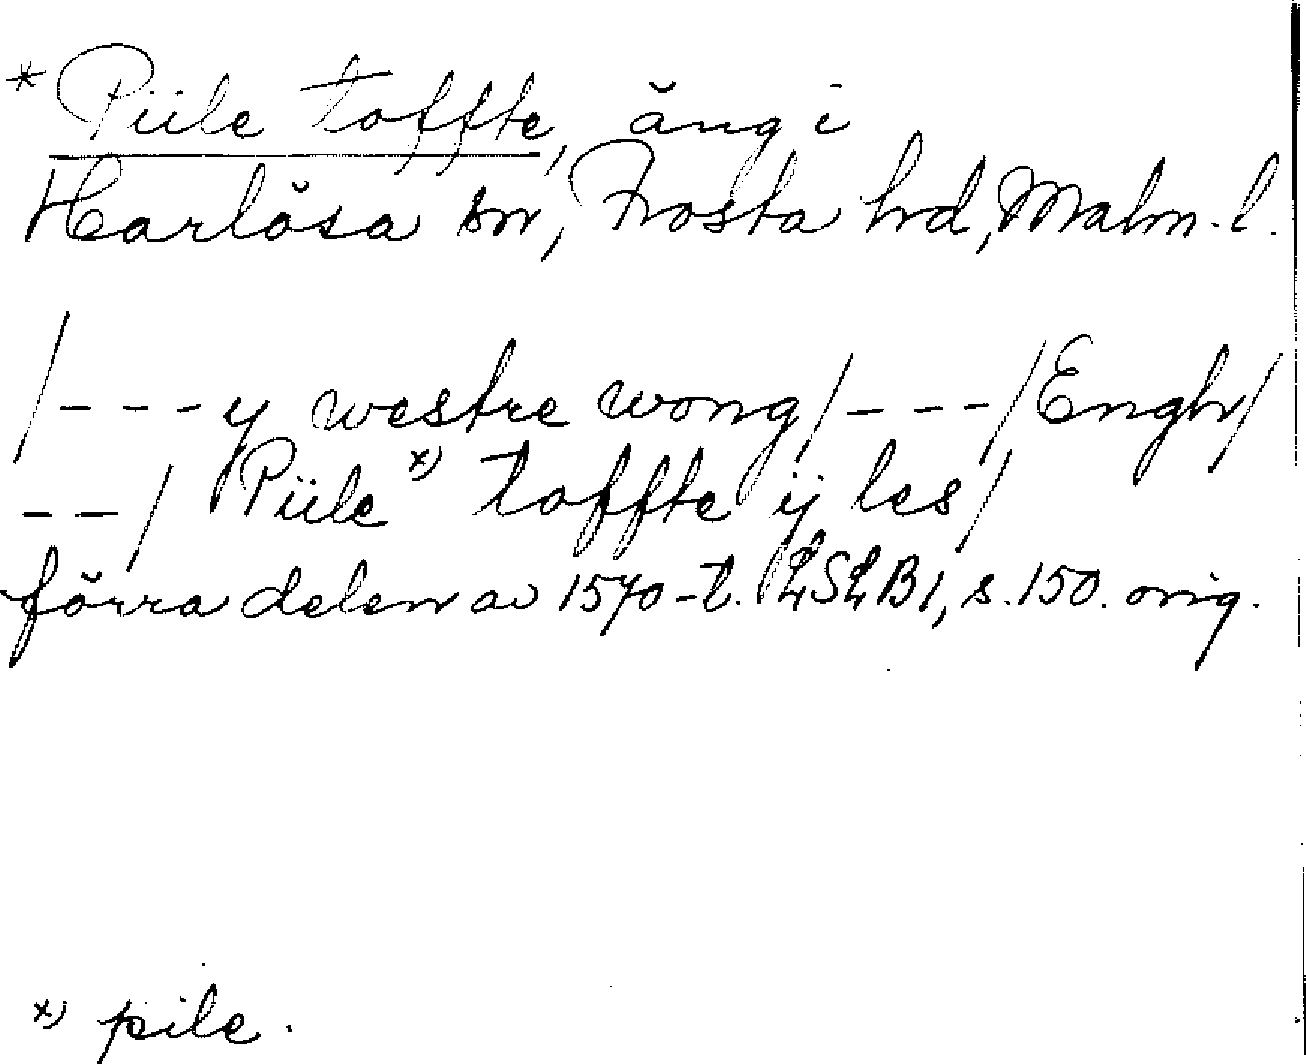 * Piile toffte, äng i
Harlösa sn, Frosta hrd, Malm. l.
/ - - - y westre wong / - - - / Engh /
- - / Piile x) toffte ij les /
förra delen av 1570-t. LSLB1, s. 150. orig.
x) pile.